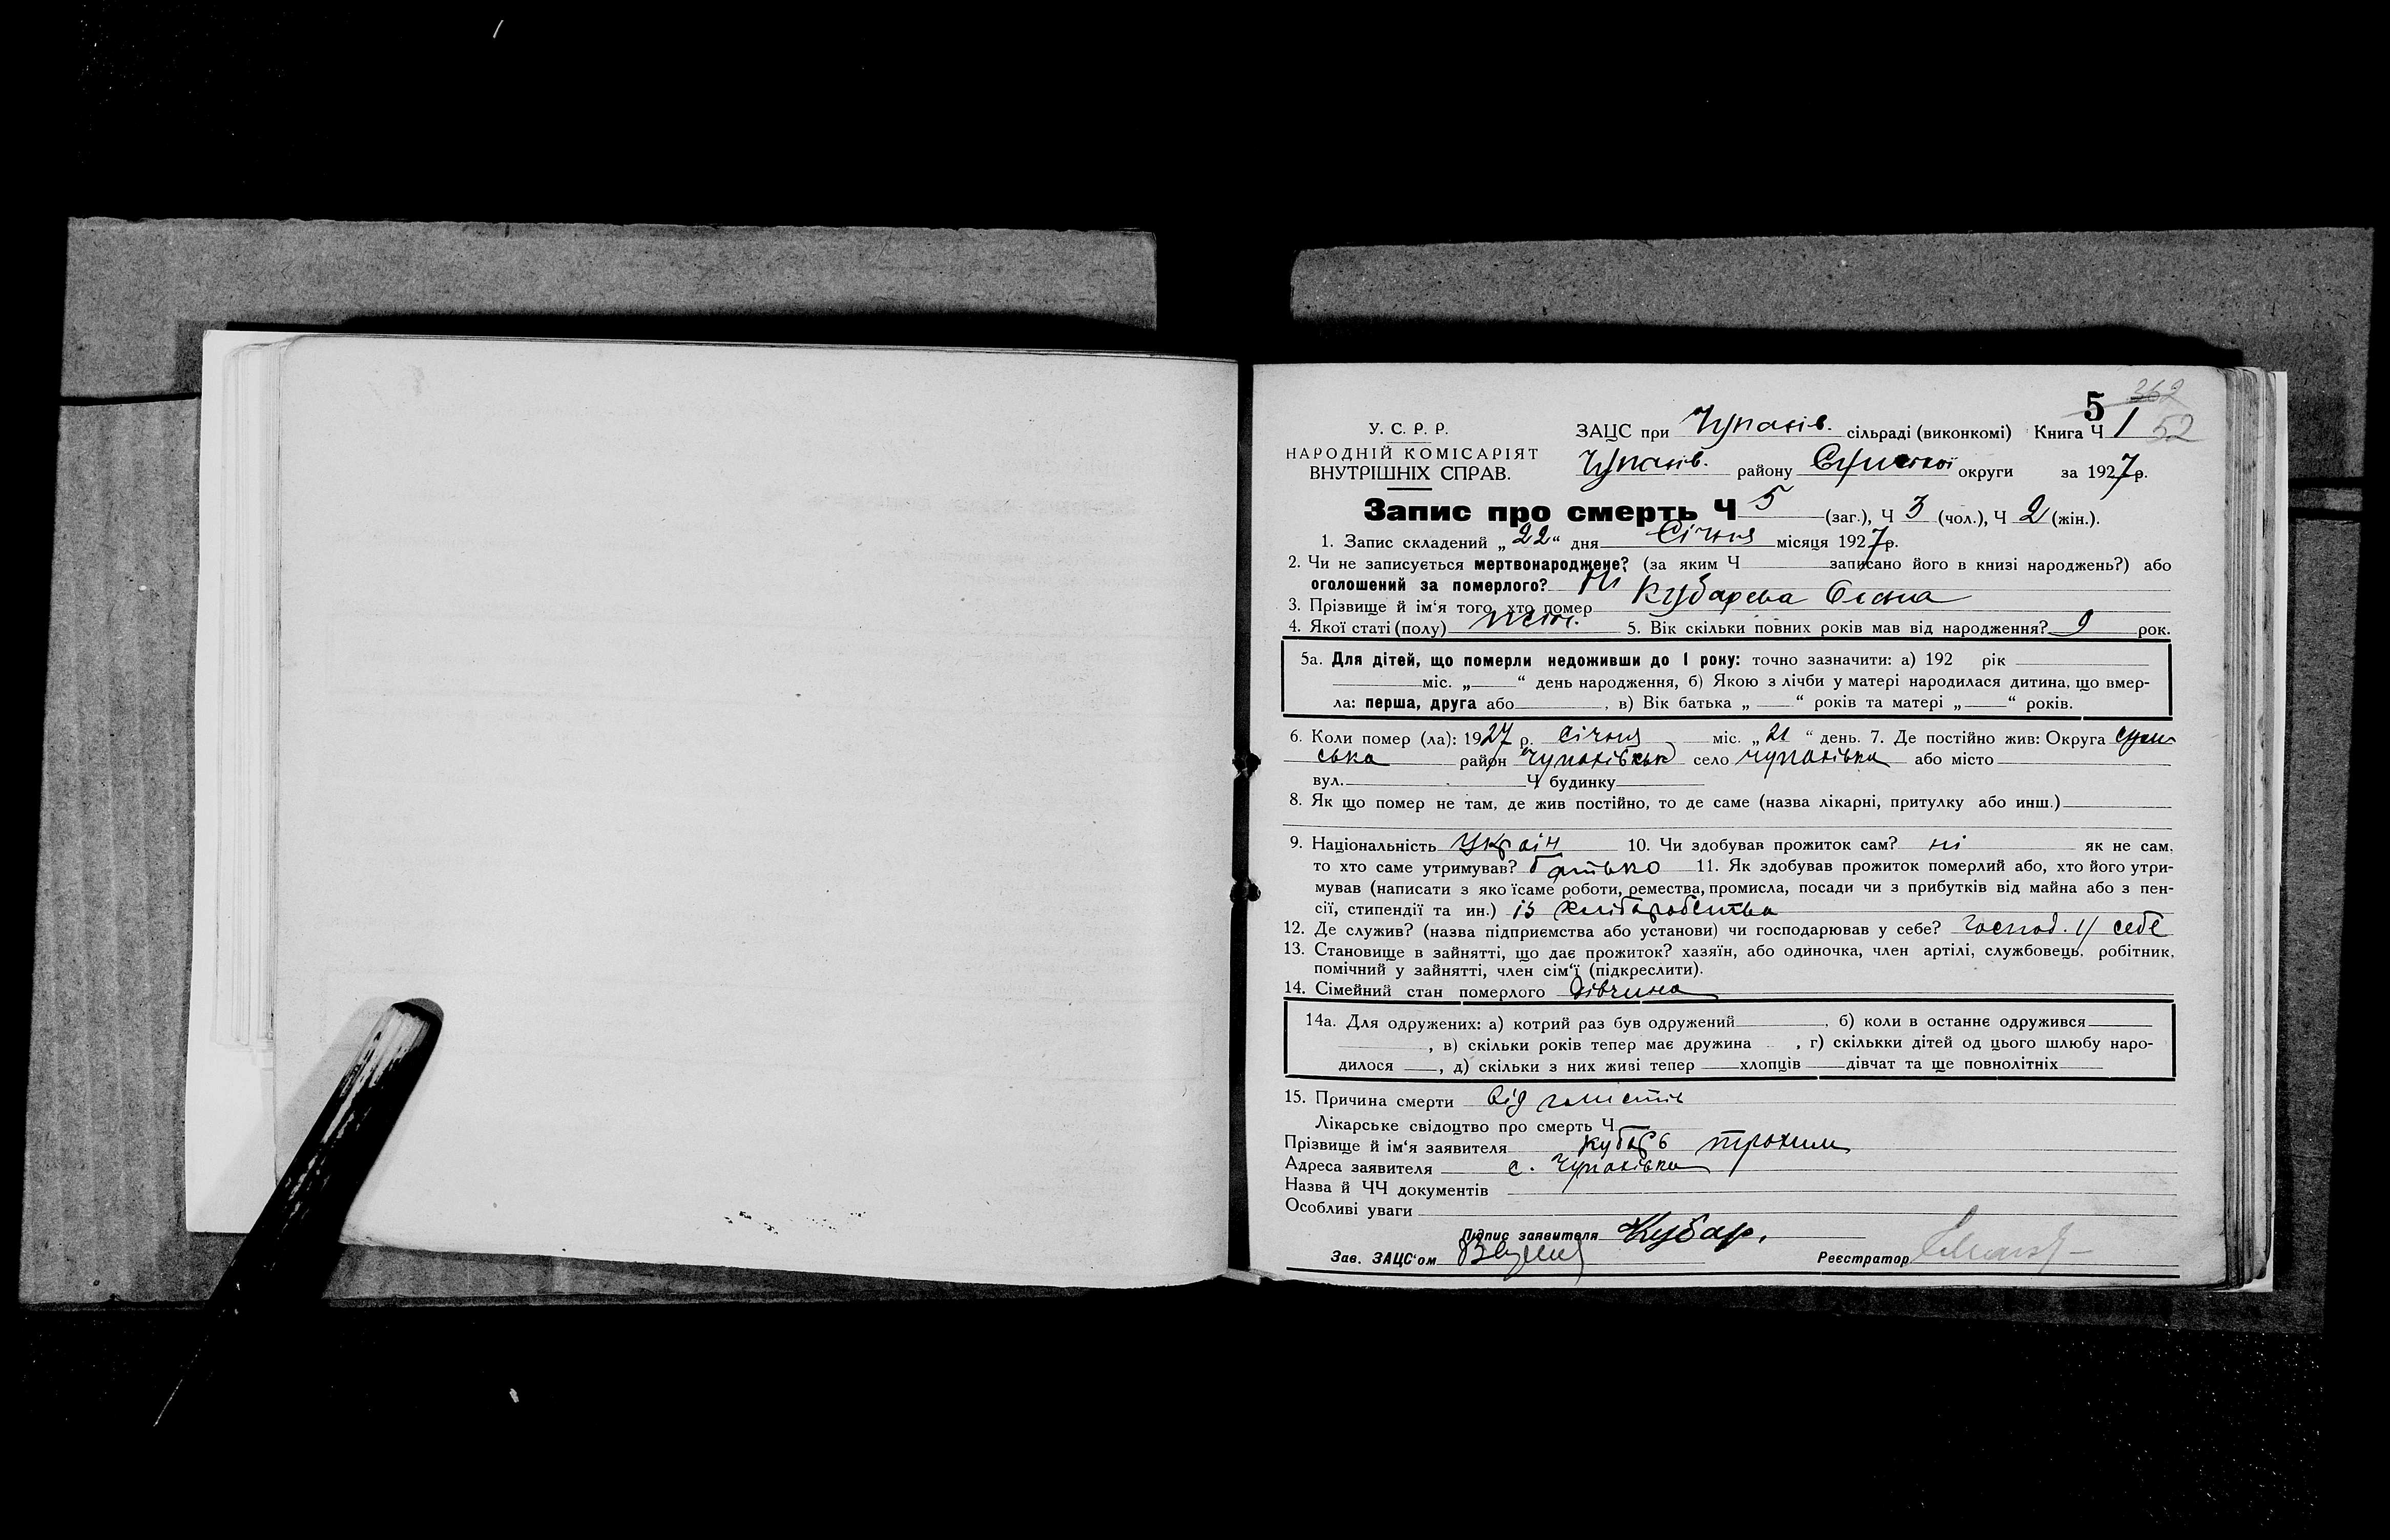 5 362
У. С. Р. Р. ЗАЦС при Чупахів. сільраді (виконкомі) Книга Ч 1 52
НАРОДНІЙ КОМІСАРІЯТ
ВНУТРІШНІХ СПРАВ. Чупахів. району Сумської округи за 1927р.
Запис про смерть Ч 5 (заг.), Ч 3 (чол.), Ч 2 (жін.).
1. Запис складений „22“ дня Січня місяця 1927р.
2. Чи не записується мертвонароджене? (за яким Ч записано його в книзі народжень?) або
оголошений за померлого? Ні
3. Прізвище й ім‘я того, хто помер Кубарева Олена
4. Якої статі (полу) жін. 5. Вік скільки повних років мав від народження? 9 рок.
5а. Для дітей, що померли недоживши до 1 року: точно зазначити: а) 192 рік
міс. „ “ день народження, б) Якою з лічби у матері народилася дитина, що вмер-
ла: перша, друга або , в) Вік батька „ “ років та матері „ “ років.
6. Коли помер (ла): 1927 р. січня міс. „21“ день. 7. Де постійно жив: Округа Сум
ська район Чупахівськ село Чупахівка або місто
вул. Ч будинку
8. Як що помер не там, де жив постійно, то де саме (назва лікарні, притулку або инш.)
9. Національність Україн 10. Чи здобував прожиток сам? ні як не сам,
то хто саме утримував? батько 11. Як здобував прожиток померлий або, хто його утри-
мував (написати з яко їсаме роботи, ремества, промисла, посади чи з прибутків від майна або з пен-
сії, стипендії та ин.) із хліборобства
12. Де служив? (назва підприємства або установи) чи господарював у себе? господ. у себе
13. Становище в зайнятті, що дає прожиток? хазяїн, або одиночка, член артілі, службовець, робітник,
помічний у зайнятті, член сім‘ї (підкреслити).
14. Сімейний стан померлого дівчина
14а. Для одружених: а) котрий раз був одружений , б) коли в останнє одружився
, в) скільки років тепер має дружина , г) скількки дітей од цього шлюбу наро-
дилося , д) скільки з них живі тепер хлопців дівчат та ще повнолітніх
15. Причина смерти від глистів
Лікарське свідоцтво про смерть Ч
Прізвище й ім‘я заявителя Кубарь Трохим
Адреса заявителя с. Чупахівка
Назва й ЧЧ документів
Особливі уваги
Підпис заявителя Кубар.
Зав. ЗАЦС‘ом Реєстратор